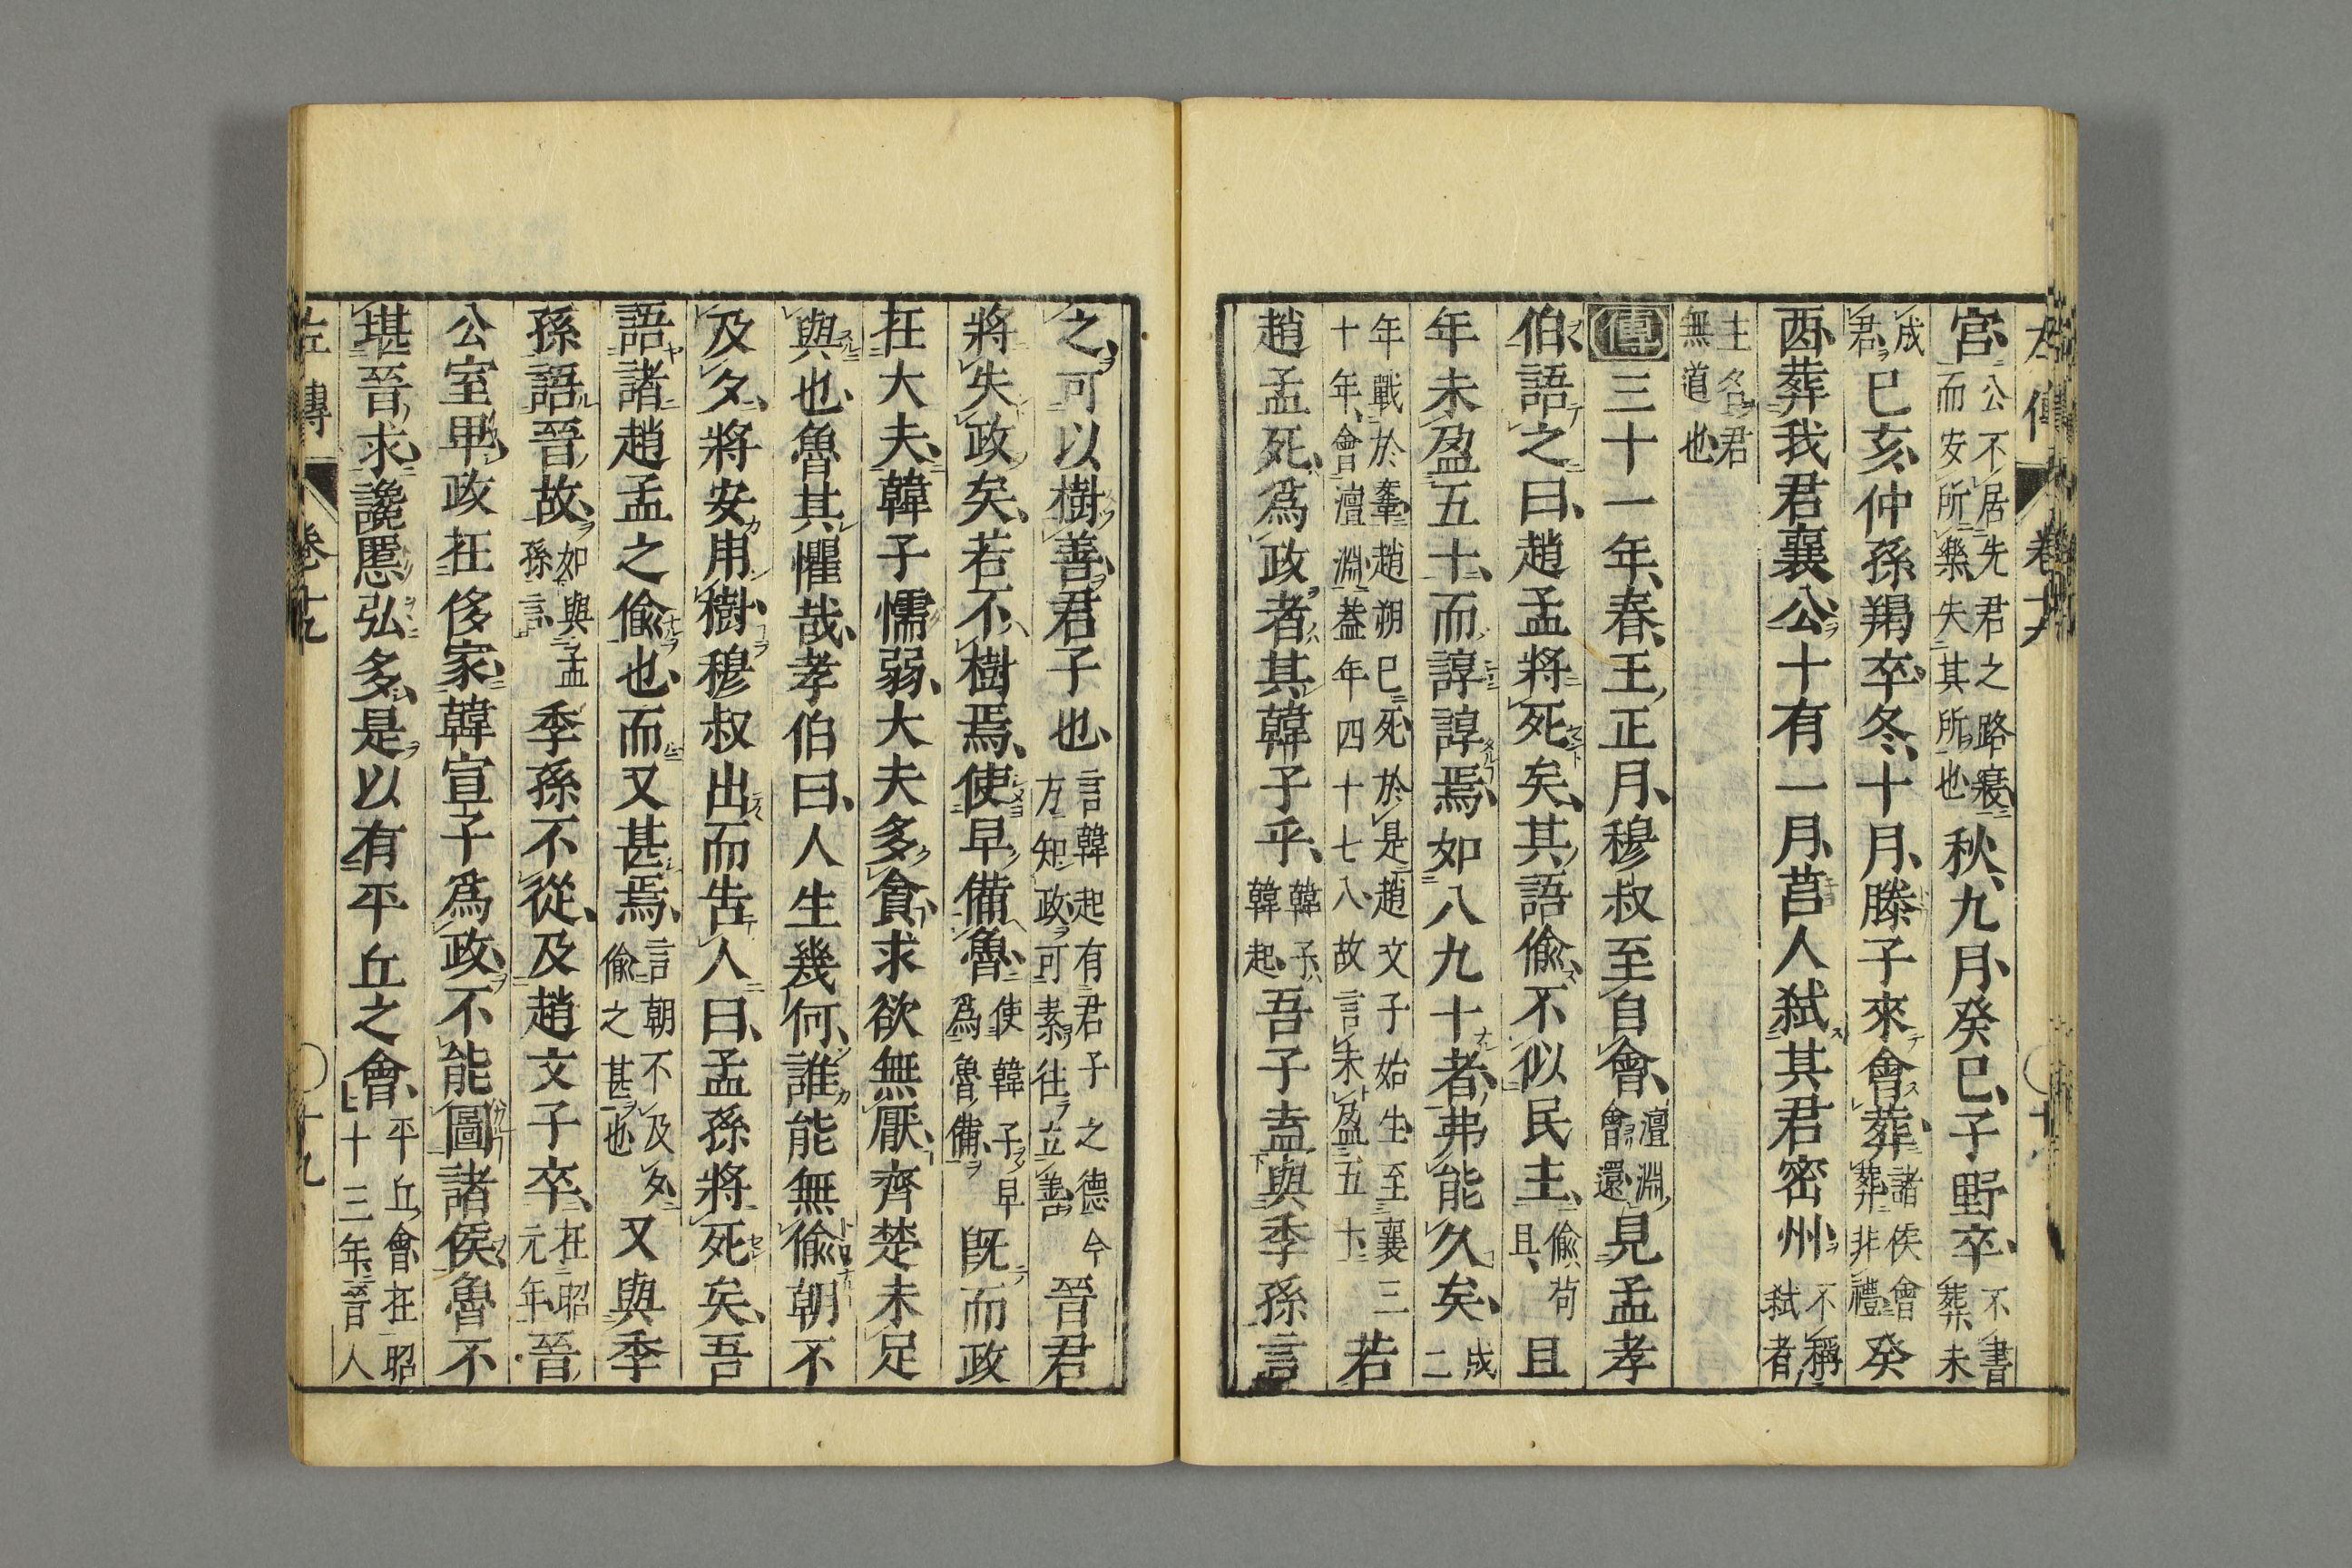 宮、公不居先君之路寢、而安所樂、失其所也秋、九月、癸巳、子野卒、不書葬、未
成君、己亥、仲孫羯卒、冬、十月、滕子來會葬、諸侯會葬、非禮癸
酉、葬我君襄公、十有一月、莒人弑其君密州、不稱弑者、
主名、君無道也
傳三十一年、春、王正月、穆叔至自會、澶淵會還、見孟孝
伯、語之曰、趙孟將死矣、其語偸、不似民主、偸、苟且、且
年未盈五十、而諄諄焉、如八九十者、弗能久矣、成二
年戰於鞌、趙朔已死、於是趙文子始生、至襄三十年、會澶淵、葢年四十七八、故言未盈五十、若
趙孟死、爲政者、其韓子乎、韓子、韓起、吾子盍與季孫言
之、可以樹善、君子也、言韓起有君子之德今方知政、可素往立善、晉君
將失政矣、若不樹焉、使早備魯、使韓子早爲魯備、旣而政
在大夫、韓子懦弱、大夫多貪、求欲無厭、齊楚未足
與也、魯其懼哉、孝伯曰、人生幾何、誰能無偸、朝不
及夕、將安用樹、穆叔出而告人曰、孟孫將死矣、吾
語諸趙孟之偸也、而又甚焉、言朝不及夕、偸之甚也又與季
孫語晉故、如與孟孫言、季孫不從、及趙文子卒、在昭元年、晉
公室卑、政在侈家、韓宣子爲政、不能圖諸侯、魯不
堪晉求、讒慝弘多、是以有平丘之會、平丘會在昭十三年、晉人
左傳　卷十九　十九